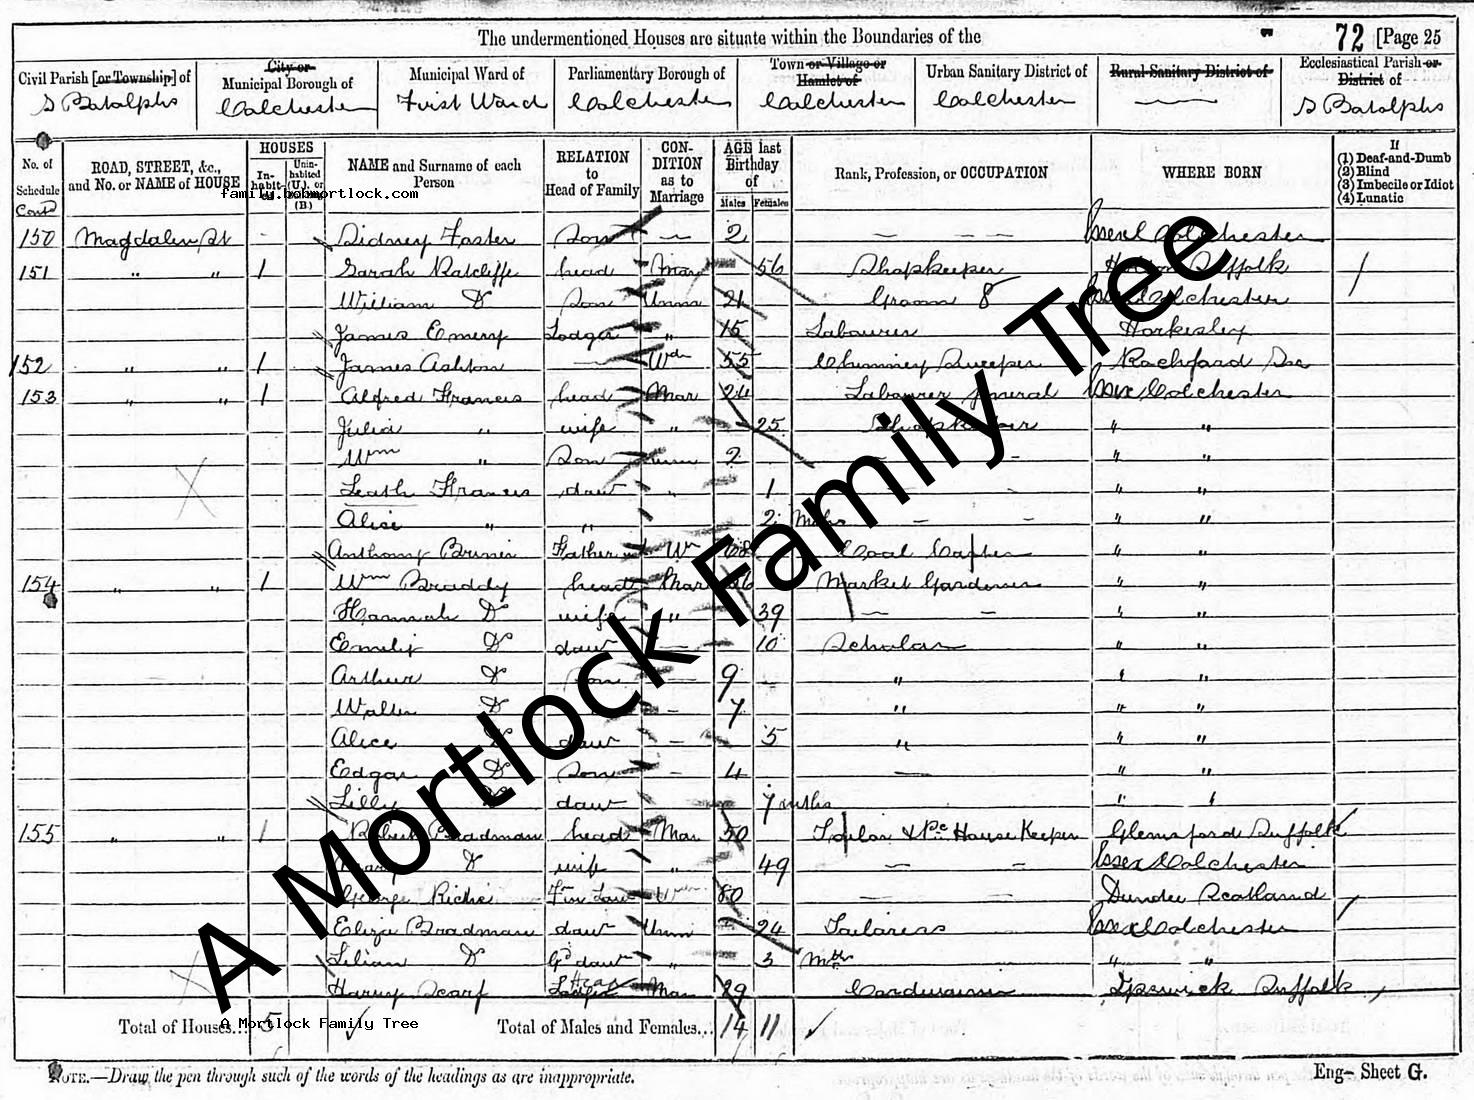 The undermentioned Houses are situate within the Boundaries of the
72 [Page 25
Civil Parish [or Township] of
S Botolphs
City or
Municipal Borough of
Colchester
Municipal Ward of
First Ward
Parliamentary Borough of
Colchester
Town or Village or
Hamlet of
Colchester
Urban Sanitary District of
Colchester
Rural Sanitary District of
Ecclesiastical Parish or
District of
S Botolphs
No. of
Schedule
ROAD, STREET, &c.,
and No. or NAME of HOUSE
HOUSES
In-
habit-
ed
Unin-
habited
(U.), or
(B.)
NAME and Surname of each
Person
RELATION
to
Head of Family
CON-
DITION
as to
Marriage
AGE last
Birthday
of
Males
Females
Rank, Profession, or OCCUPATION
WHERE BORN
If
(1) Deaf-and-Dumb
(2) Blind
(3) Imbecile or Idiot
(4) Lunatic
family.bobmortlock.com
Contd
150 Magdalen St - Sidney Foster Son — 2 — — — Essex Colchester
151 " " 1 Sarah Ratcliffe head Mar 56 Shopkeeper Suffolk
William Do Son Unm 21 Groom Essex Colchester
James Emery Lodger " 15 Labourer Horkesley
152 " " 1 James Ashton — Wdr 55 Chimney Sweeper Rochford
153 " " 1 Alfred Francis head Mar 24 Labourer general Essex Colchester
Julia " wife " 25 " "
Wm " Son unm 2 - " "
Leath Francis daur " 1 - " "
Alice " " 2 Mths — - " "
Anthony Father Wr 68 Coal " "
154 " " 1 Wm Braddy head Mar 36 Market Gardener " "
Hannah Do wife " 39 — — " "
Emily Do daur — 10 Scholar " "
Arthur Do son — 9 " " "
Walter Do — 7 " " "
Alice Do daur — 5 " " "
Edgar Do Son — 4 — " "
Lilly Do daur 7 mths " "
155 " " 1 Robert Bradman head Mar 50 Tailor & House Keeper Glemsford Suffolk
Mary Do wife " 49 — — Essex Colchester
George Fr in Law Wr 80 — — Dundee Scotland
Eliza Bradman daur Unm 24 Tailoress Essex Colchester
Lilian Do Gd daur " 3 Mths " "
Harry Scarf Lodger Head Mar 29 Cordwainer Ipswich Suffolk
Total of Houses... 5
Total of Males and Females... 14 11
A Mortlock Family Tree
NOTE.—Draw the pen through such of the words of the headings as are inappropriate.
Eng— Sheet G.
A Mortlock Family Tree